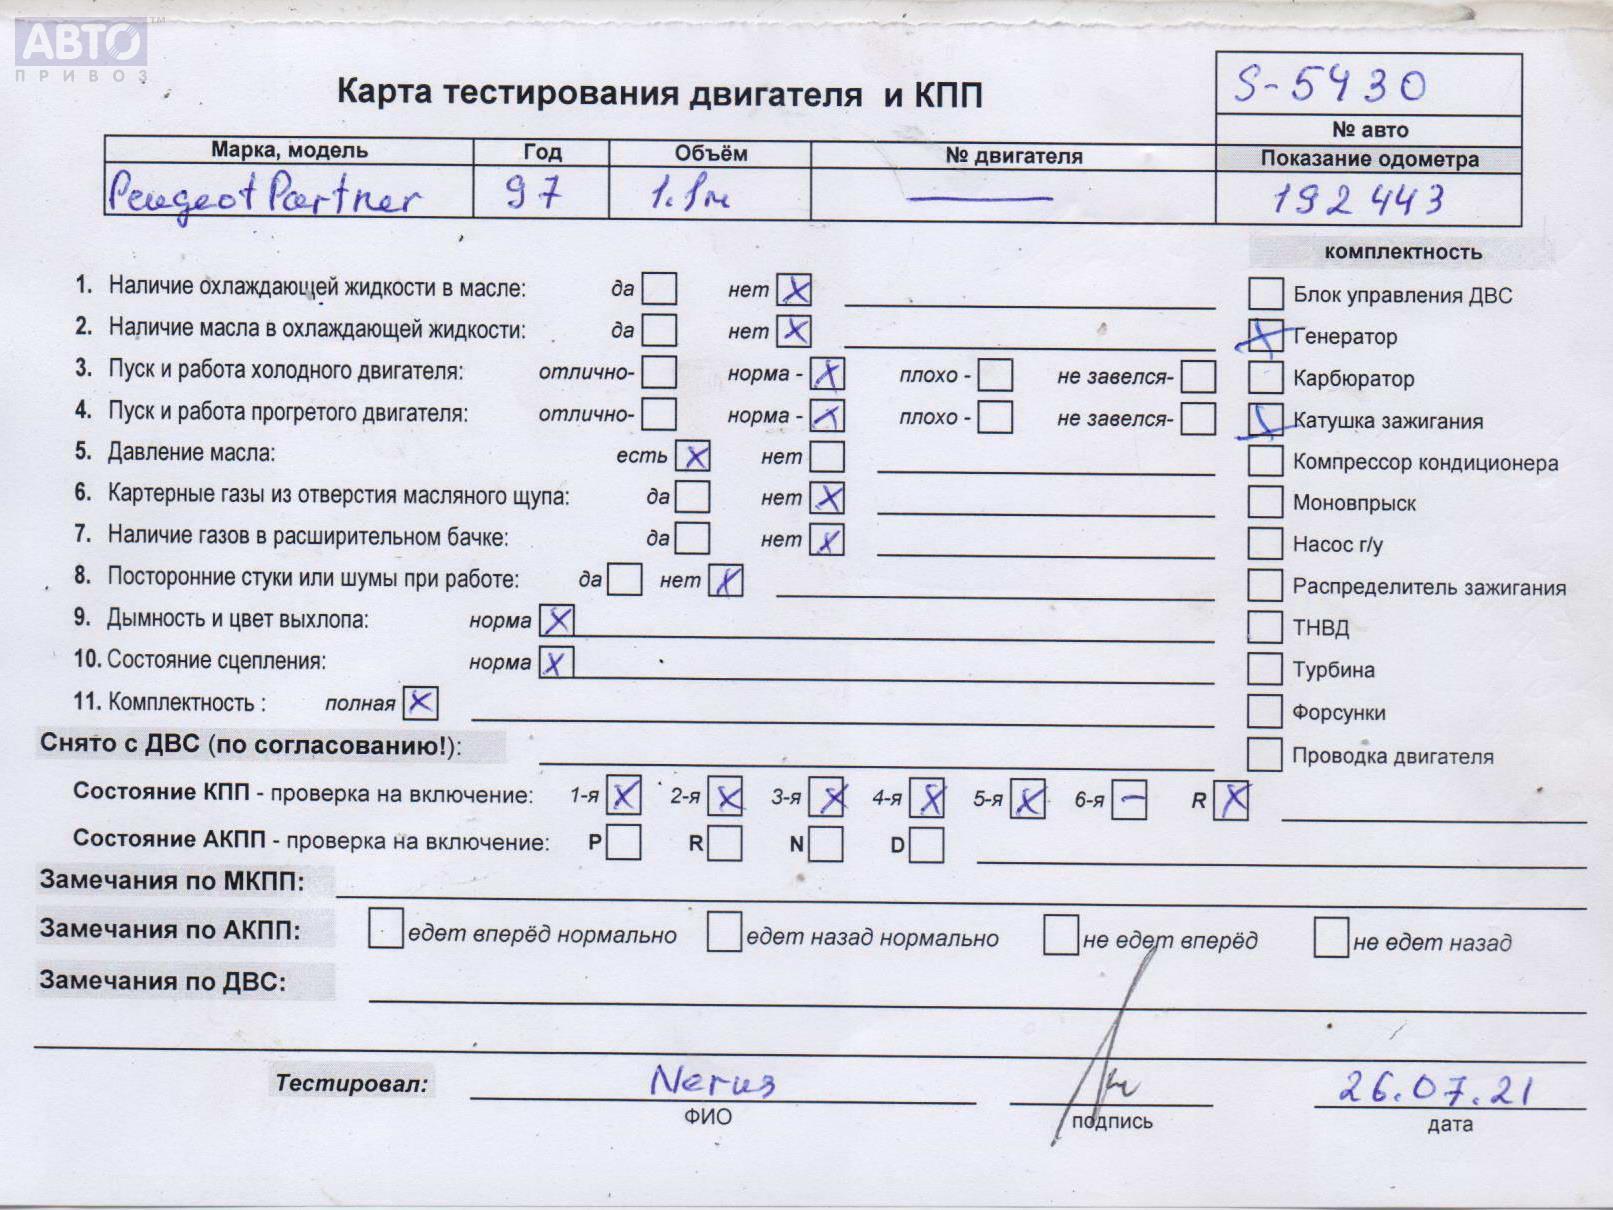 АВТО™
ПРИВОЗ
Карта тестирования двигателя и КПП
S-5430
№ авто
Марка, модель Год Объём № двигателя Показание одометра
Peugeot Partner 97 1.1 192443
комплектность
1. Наличие охлаждающей жидкости в масле: да нет X
Блок управления ДВС
2. Наличие масла в охлаждающей жидкости: да нет X
Генератор
3. Пуск и работа холодного двигателя: отлично- норма - X плохо - не завелся-
Карбюратор
4. Пуск и работа прогретого двигателя: отлично- норма - X плохо - не завелся-
Катушка зажигания
5. Давление масла: есть X нет
Компрессор кондиционера
6. Картерные газы из отверстия масляного щупа: да нет X
Моновпрыск
7. Наличие газов в расширительном бачке: да нет X
Насос г/у
8. Посторонние стуки или шумы при работе: да нет X
Распределитель зажигания
9. Дымность и цвет выхлопа: норма X
ТНВД
10. Состояние сцепления: норма X
Турбина
11. Комплектность : полная X
Форсунки
Снято с ДВС (по согласованию!):
Проводка двигателя
Состояние КПП - проверка на включение: 1-я X 2-я X 3-я X 4-я X 5-я X 6-я – R X
Состояние АКПП - проверка на включение: P R N D
Замечания по МКПП:
Замечания по АКПП: едет вперёд нормально едет назад нормально не едет вперёд не едет назад
Замечания по ДВС:
Тестировал: 26.07.21
ФИО подпись дата